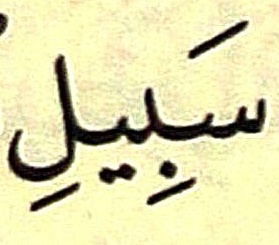 سَبِيلِ